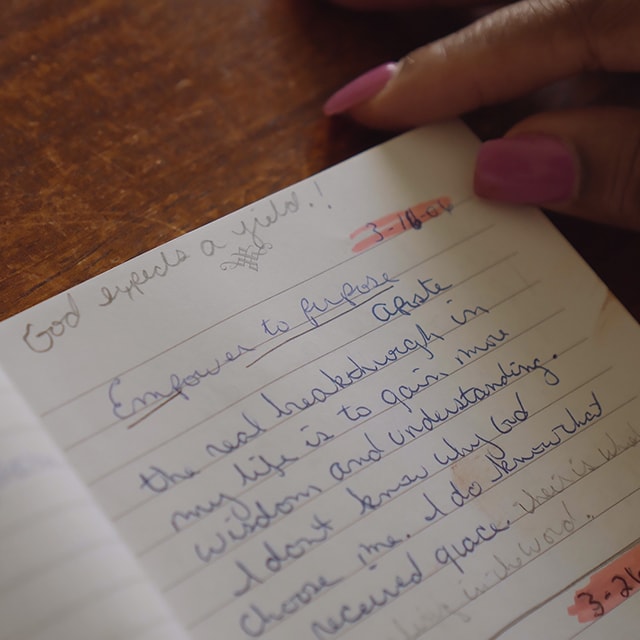 God expects a yield.!
3-16-01
Empower to purpose
Apate
the real breakthrough in
my life is to gain more
wisdom and understanding.
I don't know why God
choose me. I do know what
received grace. their is
in the word.
3-26